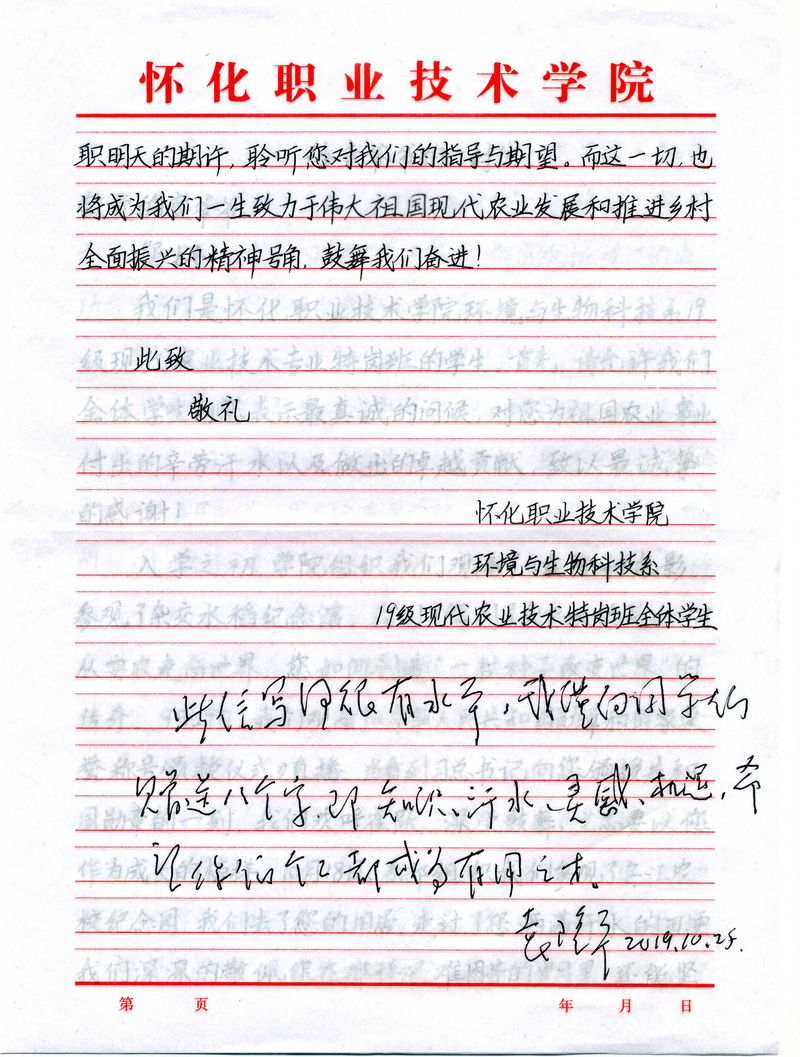 怀化职业技术学院
职明天的期许，聆听您对我们的指导与期望。而这一切，也
将成为我们一生致力于伟大祖国现代农业发展和推进乡村
全面振兴的精神号角，鼓舞我们奋进！
此致
敬礼
怀化职业技术学院
环境与生物科技系
19级现代农业技术特岗班全体学生
此信写得很有水平，我谨向同学们
赠送八个字，即知识、汗水、灵感、机遇，希
望你们个个都成为有用之才。
袁隆平 2019.10.28.
第 页 年 月 日